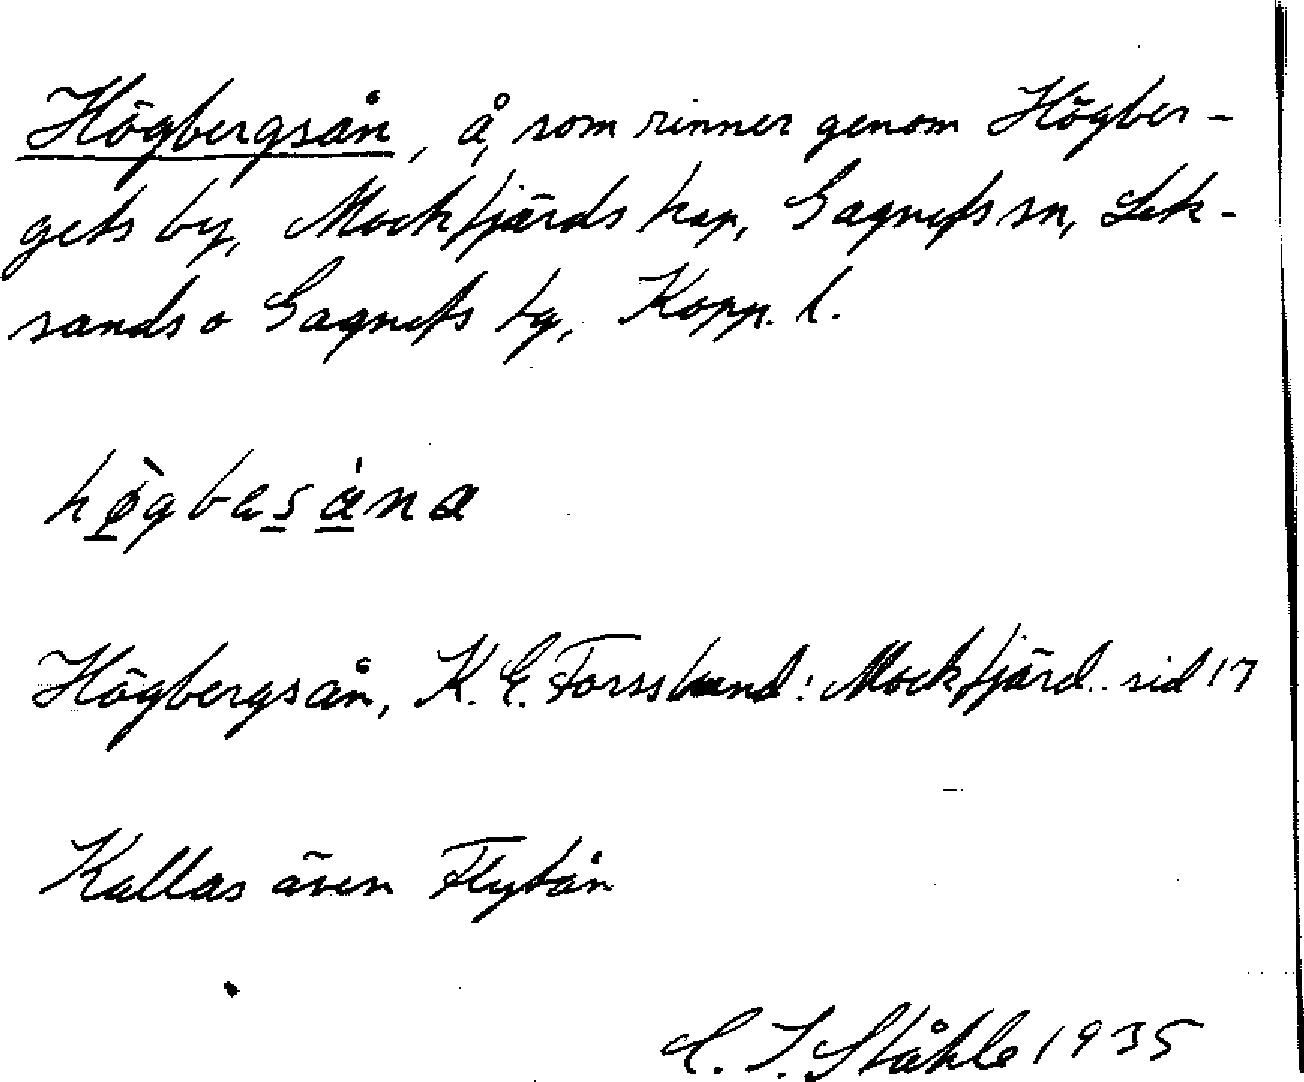 Högbergsån, å, som rinner genom Högber-
gets by, Mockfjärds kap, Gagnefs sn, Lek-
sands o Gagnefs tg, Kopp. l.
høgbesåna
Högbergsån, K. E. Forsslund: Mockfjärd. sid 17
Kallas även Flytån
C. I. Ståhle 1935